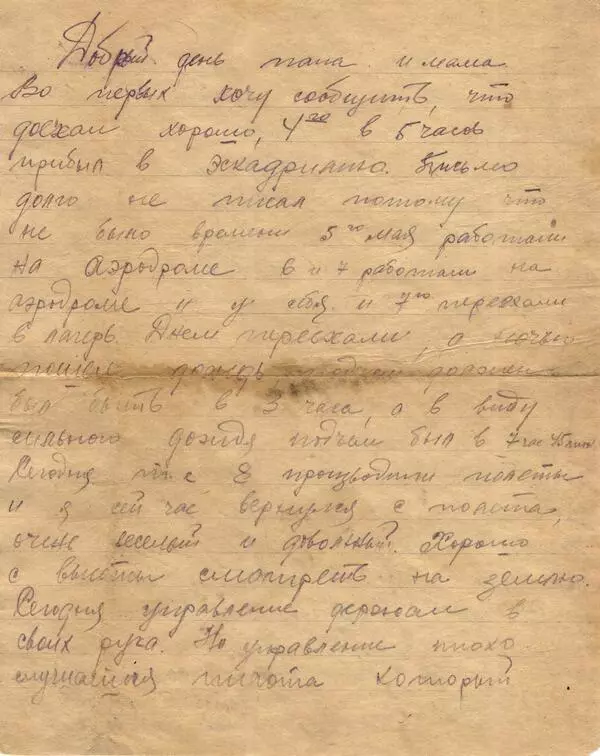 Добрый день папа и мама
Во первых хочу сообщить, что
доехал хорошо, 4го в 5 часов
прибыл в Эскадрилью. Письмо
долго не писал потому что
не было времени 5го мая работали
на Аэродроме 6 и 7 работали на
аэродроме и у себя и 7го переехали
в лагерь. Днем переехали, а ночью
пошел дождь, подъем должен
был быть в 3 часа, а в виду
сильного дождя подъем был в 7 час 45 мин
Сегодня т. е 8 производили полеты
и я сей час вернулся с полета,
очень веселый и довольный. Хорошо
с высоты смотреть на землю.
Сегодня управление держал в
своих рука. Но управление плохо
слушается пилота который